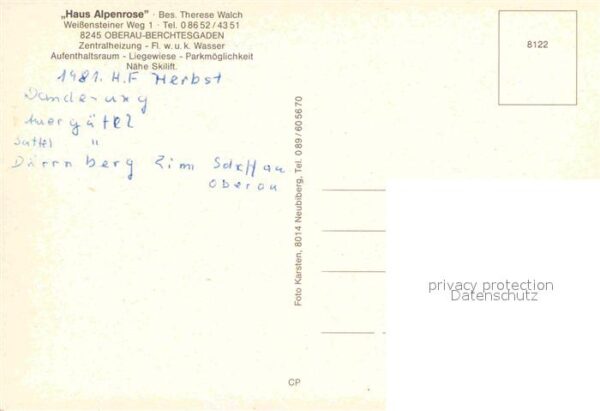 „Haus Alpenrose” · Bes. Therese Walch
Weißensteiner Weg 1 · Tel. 0 86 52 / 43 51
8245 OBERAU-BERCHTESGADEN
Zentralheizung - Fl. w. u. k. Wasser
Aufenthaltsraum - Liegewiese - Parkmöglichkeit
Nähe Skilift.
1981. H.F Herbst
Wanderung
Sattel "
Dürrnberg
Oberau
Foto Karsten, 8014 Neubiberg, Tel. 0 89 / 60 56 70
8122
privacy protection
Datenschutz
CP